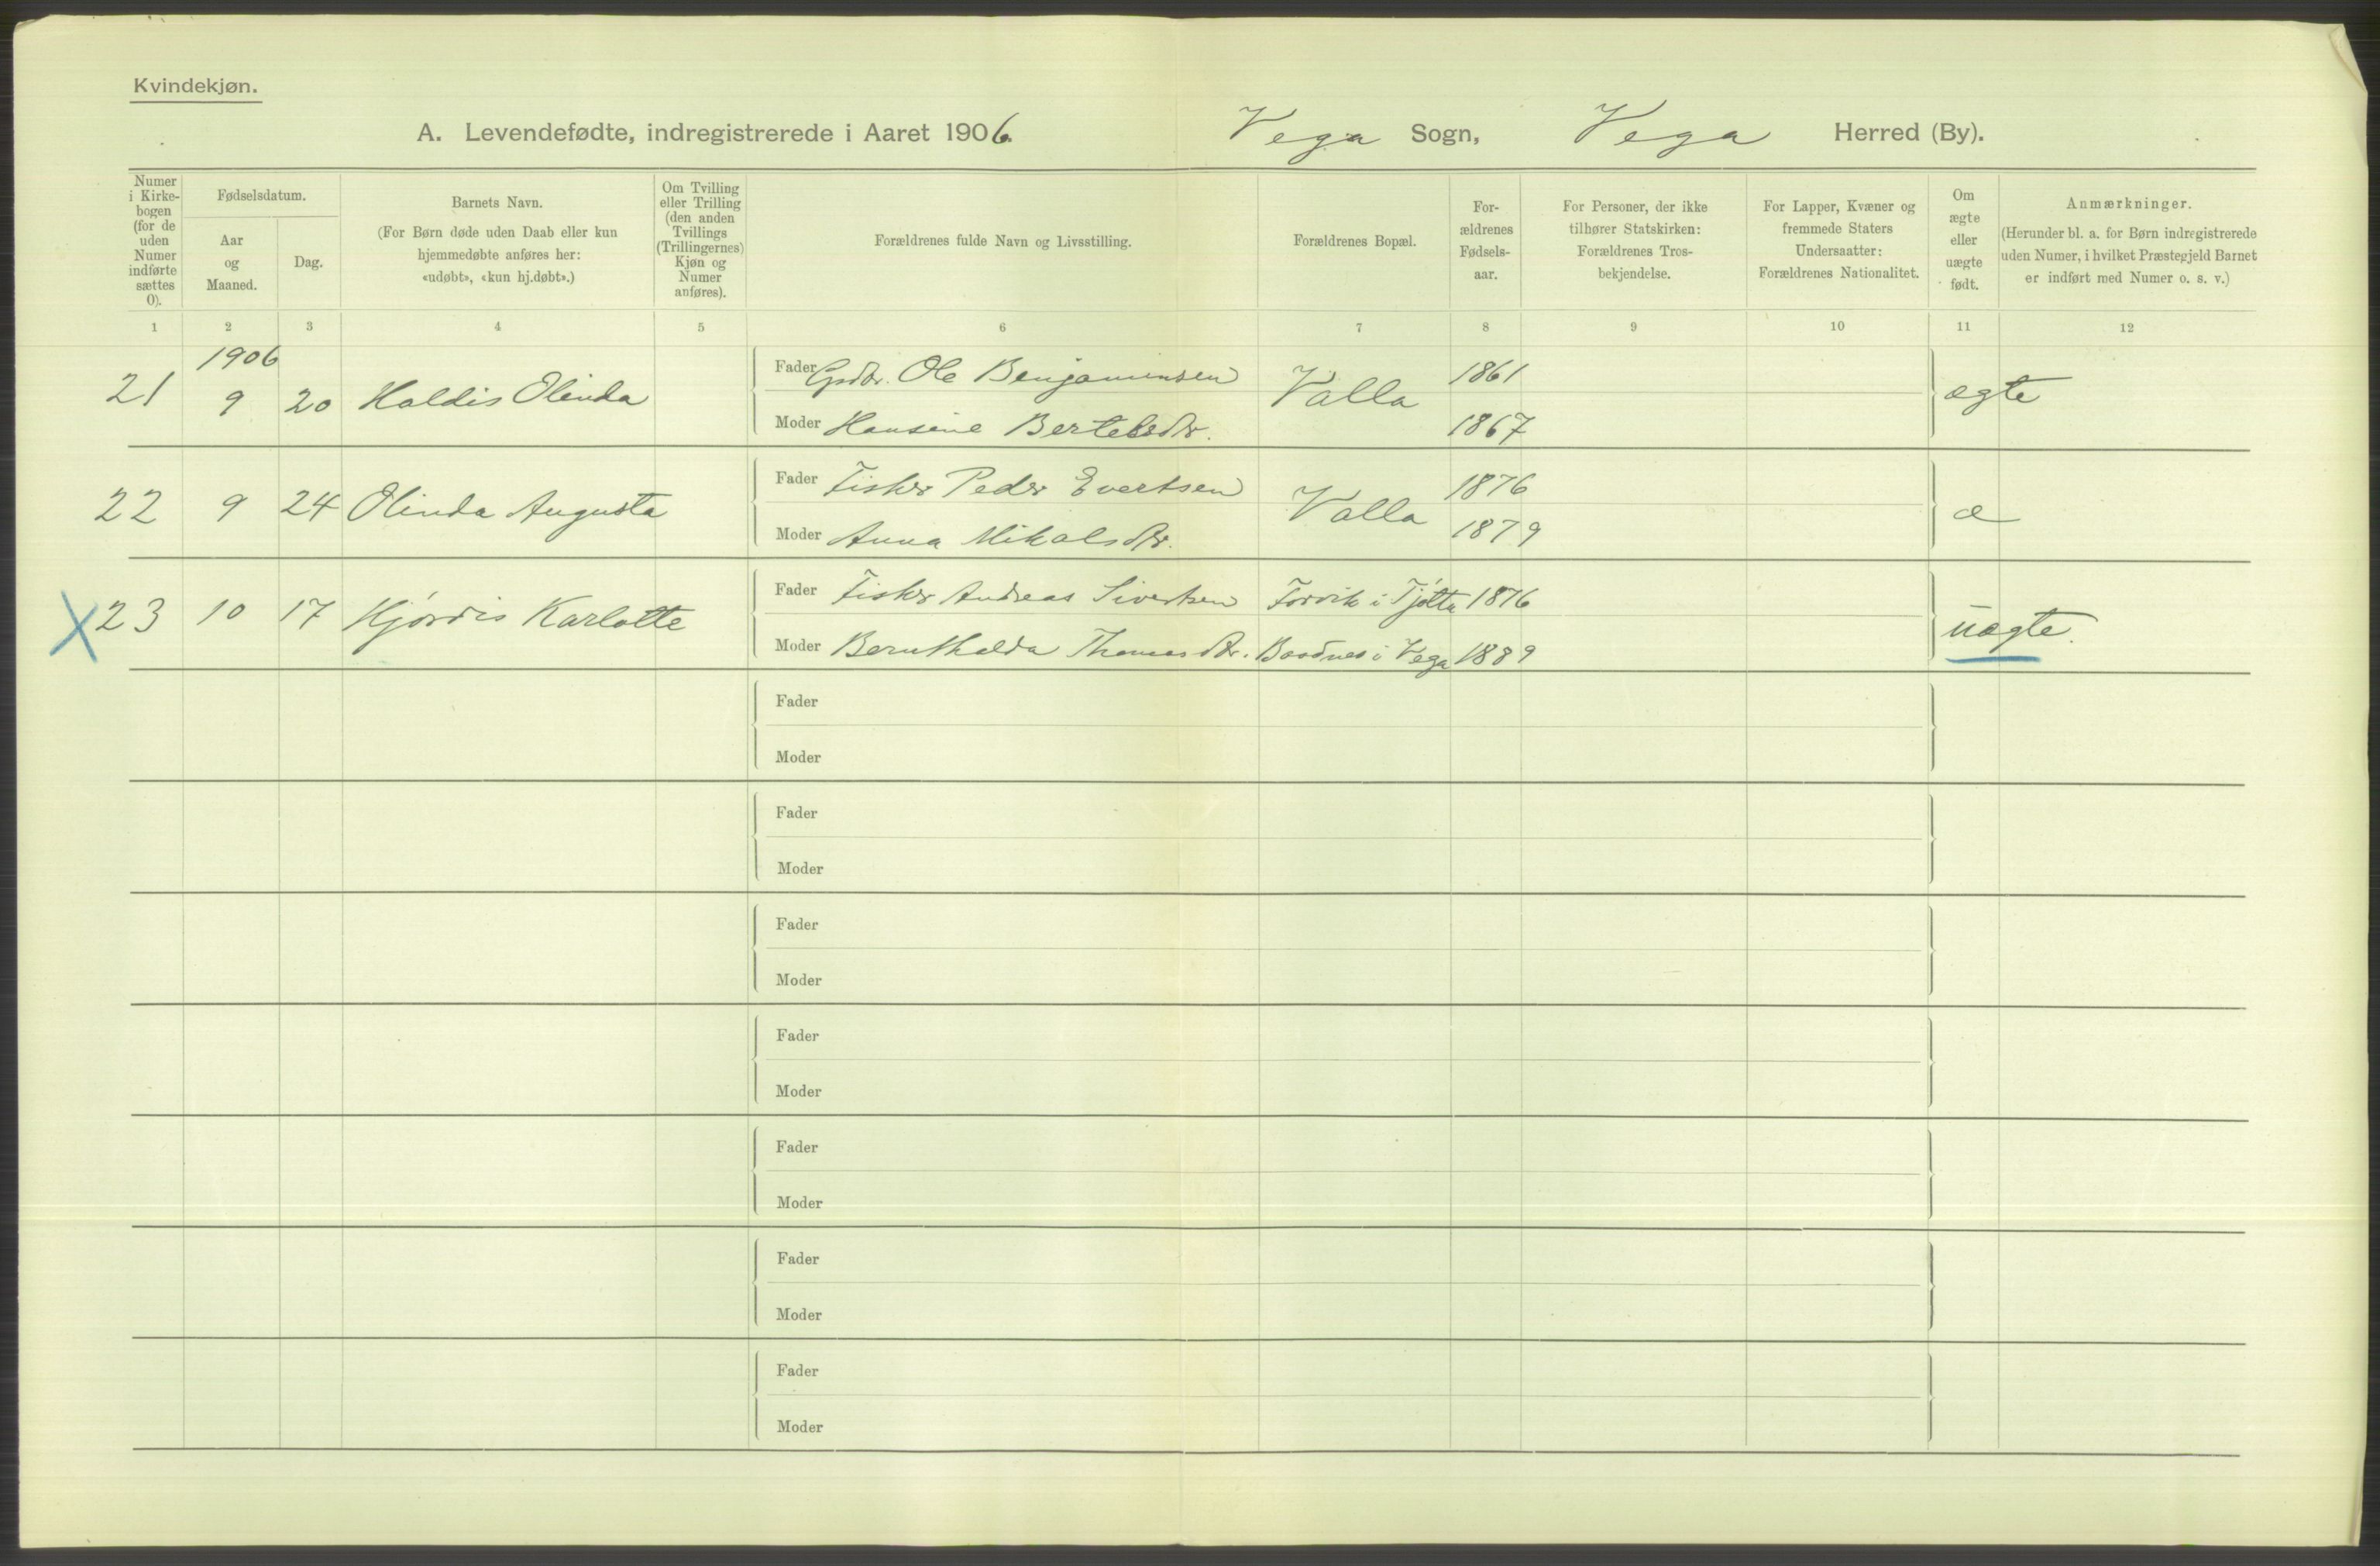 Kvindekjøn.
A. Levendefødte, indregistrerede i Aaret 1906. Vega Sogn, Vega Herred (By).
Numer i Kirkebogen (for de uden Numer indførte sættes 0).
Fødselsdatum.
Aar og Maaned.
Dag.
Barnets Navn.
(For Børn døde uden Daab eller kun
hjemmedøbte anføres her:
«udøbt», «kun hj.døbt».)
Om Tvilling
eller Trilling
(den anden
Tvillings
(Trillingernes)
Kjøn og
Numer
anføres).
Forældrenes fulde Navn og Livsstilling.
Forældrenes Bopæl.
For-
ældrenes
Fødsels-
aar.
For Personer, der ikke
tilhører Statskirken:
Forældrenes Tros-
bekjendelse.
For Lapper, Kvæner og
fremmede Staters
Undersaatter:
Forældrenes Nationalitet.
Om
ægte
eller
uægte
født.
Anmærkninger.
(Herunder bl. a. for Børn indregistrerede
uden Numer, i hvilket Præstegjeld Barnet
er indført med Numer o. s. v.)
1 2 3 4 5 6 7 8 9 10 11 12
1906
21 9 20 Haldis Olinda
Fader Gsdbr. Ole Benjaminsen Valla 1861 ægte
Moder Hansine Bertelsdtr. 1867
22 9 24 Olinda Augusta
Fader Fisker Peder Evertsen Valla 1876 æ
Moder Anna Mikalsdtr. 1879
X 23 10 17 Hjørdis Karlotte
Fader Fisker Andreas Sivertsen Forvik i Tjøtta 1876 uægte.
Moder Bernthalda Thomasdtr. i Vega 1889
Fader
Moder
Fader
Moder
Fader
Moder
Fader
Moder
Fader
Moder
Fader
Moder
Fader
Moder